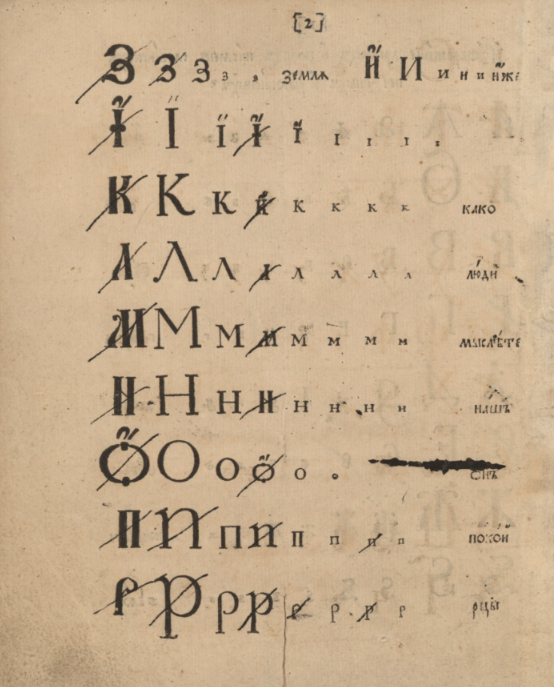 [2]
З З З З з з землѧ Й И и н и иже
Ї Ї ї ї ї і і і і
К К К к к к к к како
Л Л л л л л л л люди
М М м м м м м м мыслѣте
Н Н н н н н н н нашъ
О О о о о о онъ
П П п п п п п п покои
Р Р р р р р р р рцы